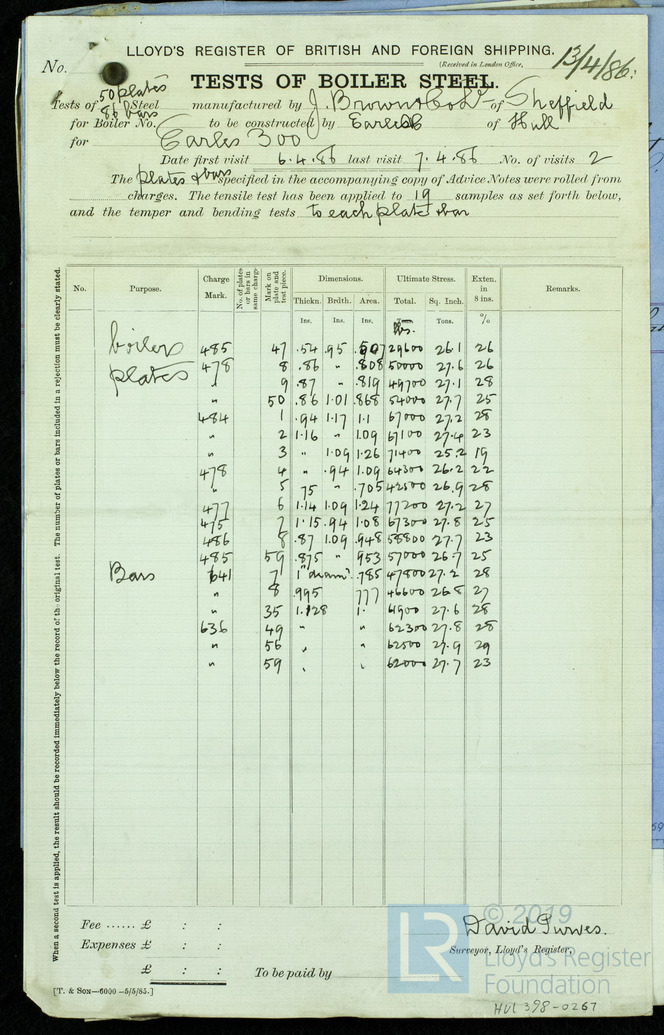 LLOYD'S REGISTER OF BRITISH AND FOREIGN SHIPPING.
No.
(Received in London Office, 13/4/86.
TESTS OF BOILER STEEL.
50 plates
Tests of 86 bars Steel manufactured by J. Brown & Co Ld of Sheffield
for Boiler No. to be constructed by Earles of Hull
for Earles 300
Date first visit 6.4.86 last visit 7.4.86 No. of visits 2
The plates & bars specified in the accompanying copy of Advice Notes were rolled from
charges. The tensile test has been applied to 19 samples as set forth below,
and the temper and bending tests to each plate & bar
When a second test is applied, the result should be recorded immediately below the record of the original test. The number of plates or bars included in a rejection must be clearly stated.
No. Purpose. Charge Mark. No. of plates or bars in same charge Mark on plate and test piece. Dimensions. Ultimate Stress. Exten. in 8 ins. Remarks.
Thickn. Brdth. Area. Total. Sq. Inch.
Ins. Ins. Ins. lbs. Tons. %
boiler 485 47 .54 .95 .507 29600 26.1 26
plates 478 8 .86 " .808 50000 27.6 26
9 .87 " .819 49700 27.1 28
" 50 .86 1.01 .868 54000 27.7 25
484 1 .94 1.17 1.1 67000 27.2 28
" 2 1.16 " 1.09 67100 27.4 23
" 3 " 1.09 1.26 71400 25.2 19
478 4 " .94 1.09 64300 26.2 22
" 5 75 " .705 42500 26.9 28
477 6 1.14 1.09 1.24 77200 27.2 27
475 7 1.15 .94 1.08 67300 27.8 25
486 8 .87 1.09 .948 58800 27.7 23
485 59 .875 " 953 57000 26.7 25
Bars 641 7 1" diamr. .785 47800 27.2 28
" 8 .995 777 46600 26.8 27
" 35 1.128 1. 61900 27.6 28
636 49 " " 62300 27.8 28
" 56 " " 62500 27.9 29
" 59 " " 62000 27.7 23
Fee ...... £ : :
Expenses £ : :
£ : :
To be paid by
David Purves.
Surveyor, Lloyd's Register.
[T. & SON—6000—5/5/85.]
LR
© 2019
Lloyd's Register
Foundation
HUL 398-0267